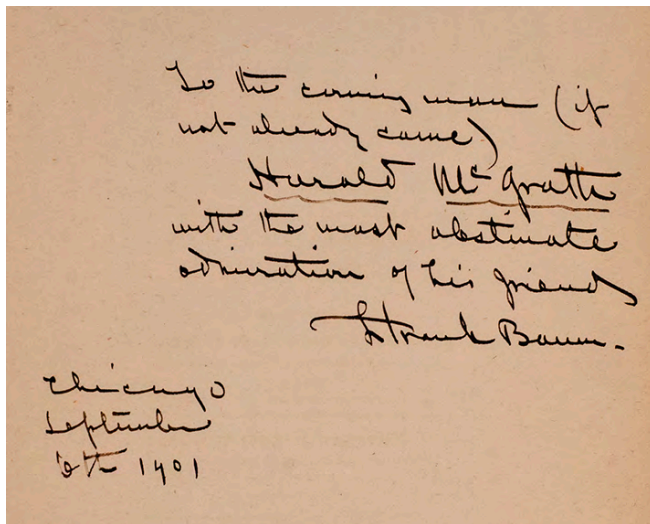 To the coming man (if
not already came)
Harold McGrath
with the most obstinate
admiration of his friend
L Frank Baum.
Chicago
September
6th 1901